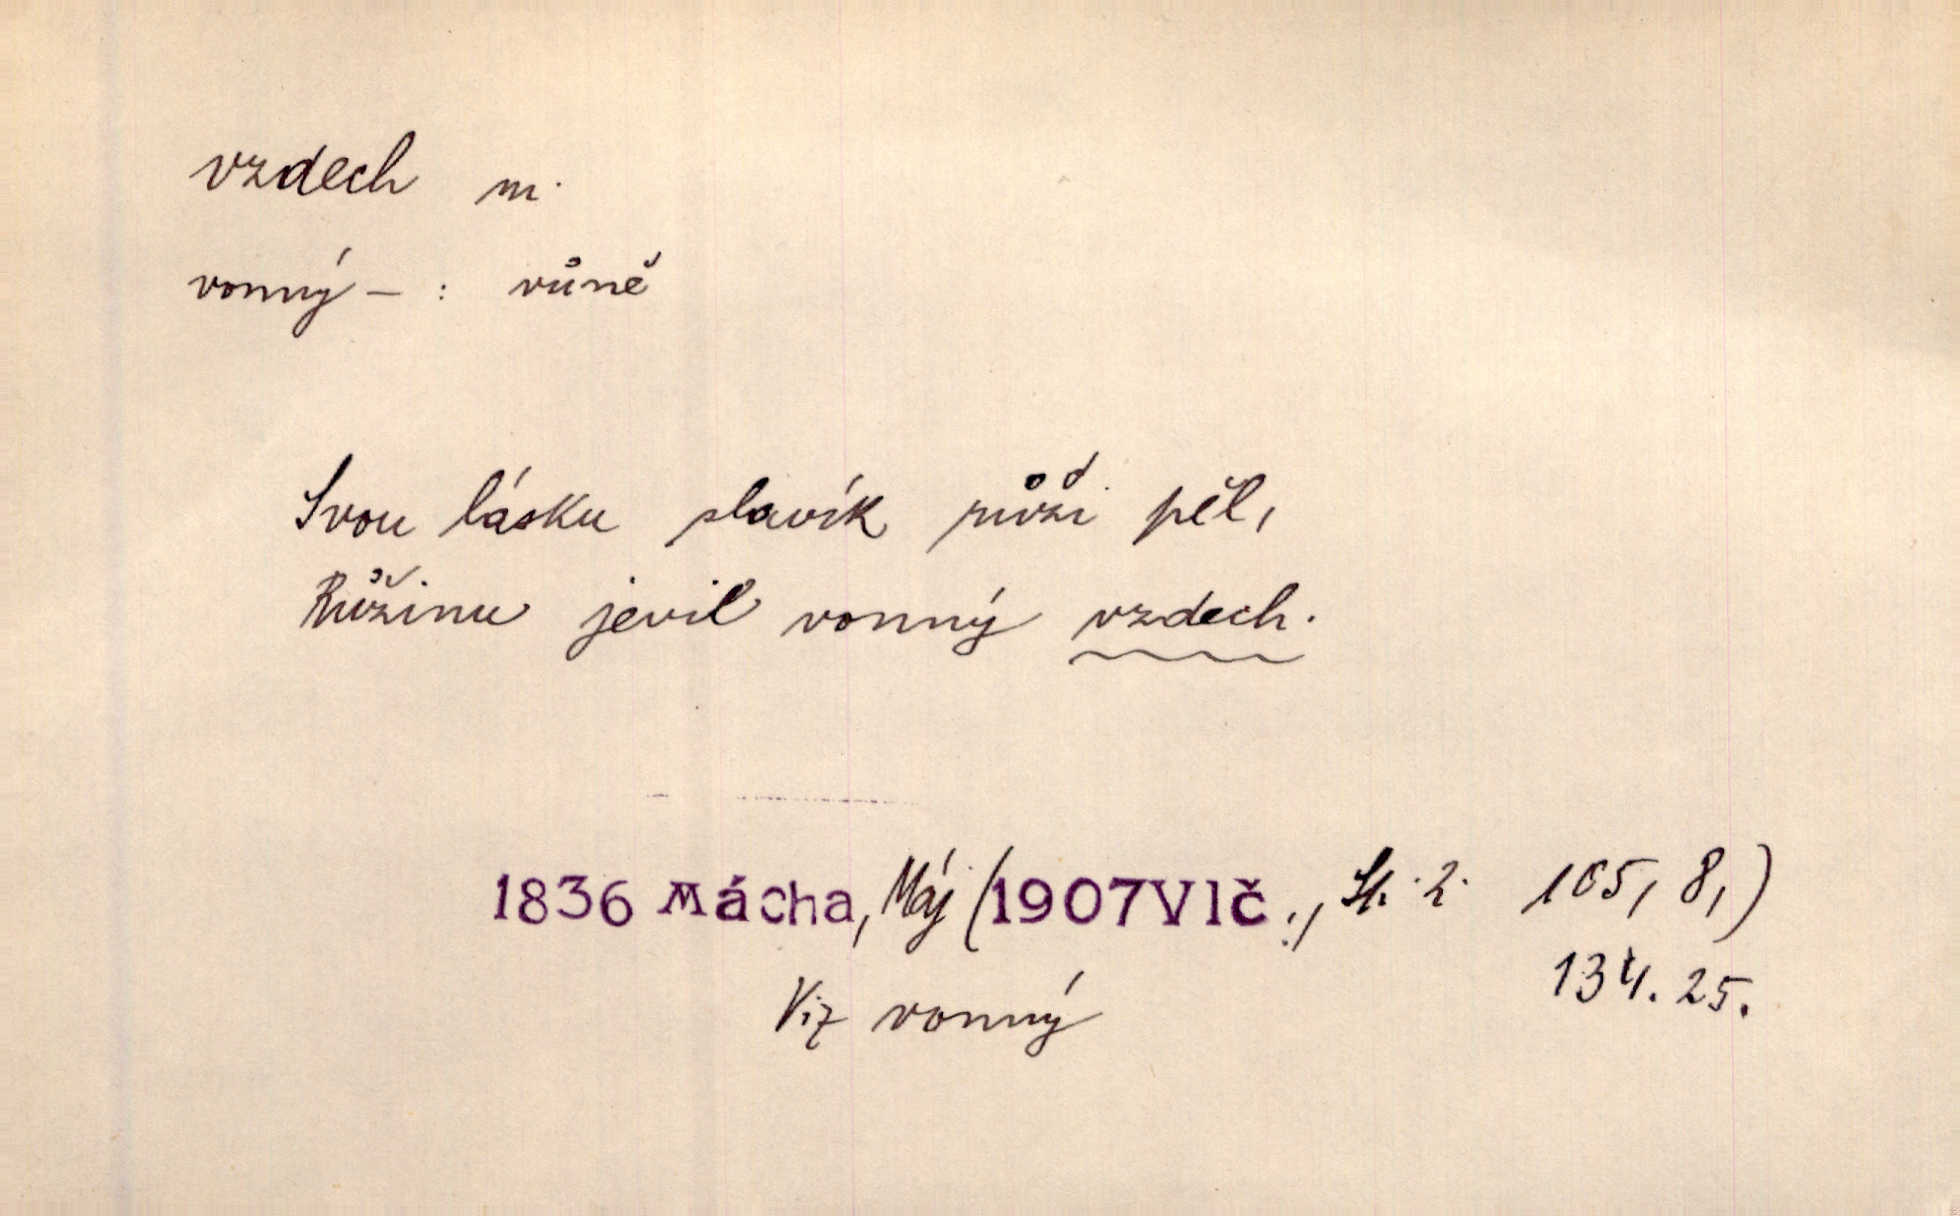 vzdech m.
vonný – : vůně
Svou lásku slavík růži pěl,
Růžinu jevil vonný vzdech.
1836 Mácha, Máj (1907 Vlč., Sp. 2. 165, 8,)
134. 25.
Viz vonný